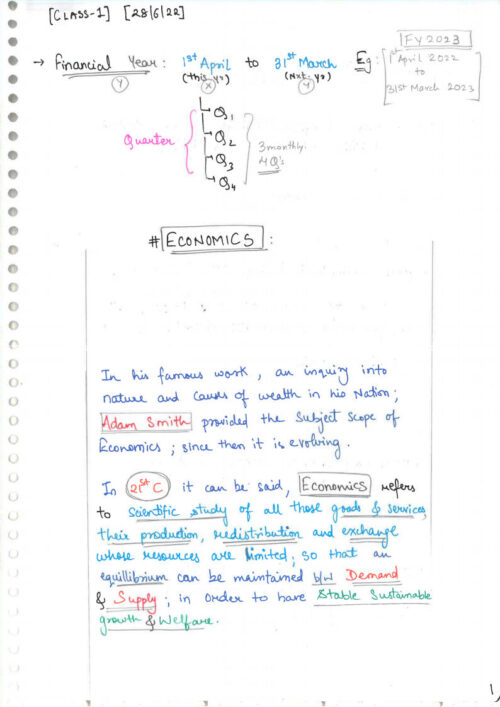 [CLASS-1] [28/6/22]
FY 2023
→ Financial Year: 1st April to 31st March Eg: 1st April 2022
(This yr) (Nxt yr) to
Y X Y 31st March 2023
Q1
Quarter Q2 3 monthly.
Q3 4 Q's
Q4
# ECONOMICS :
In his famous work, an inquiry into
nature and causes of wealth in his Nation;
Adam Smith provided the Subject Scope of
Economics; since then it is evolving.
In 21st C it can be said, Economics refers
to Scientific study of all those goods & services,
their production, redistribution and exchange
whose resources are limited; so that an
equillibrium can be maintained b/w Demand
& Supply; in order to have Stable Sustainable
growth & Welfare.
1